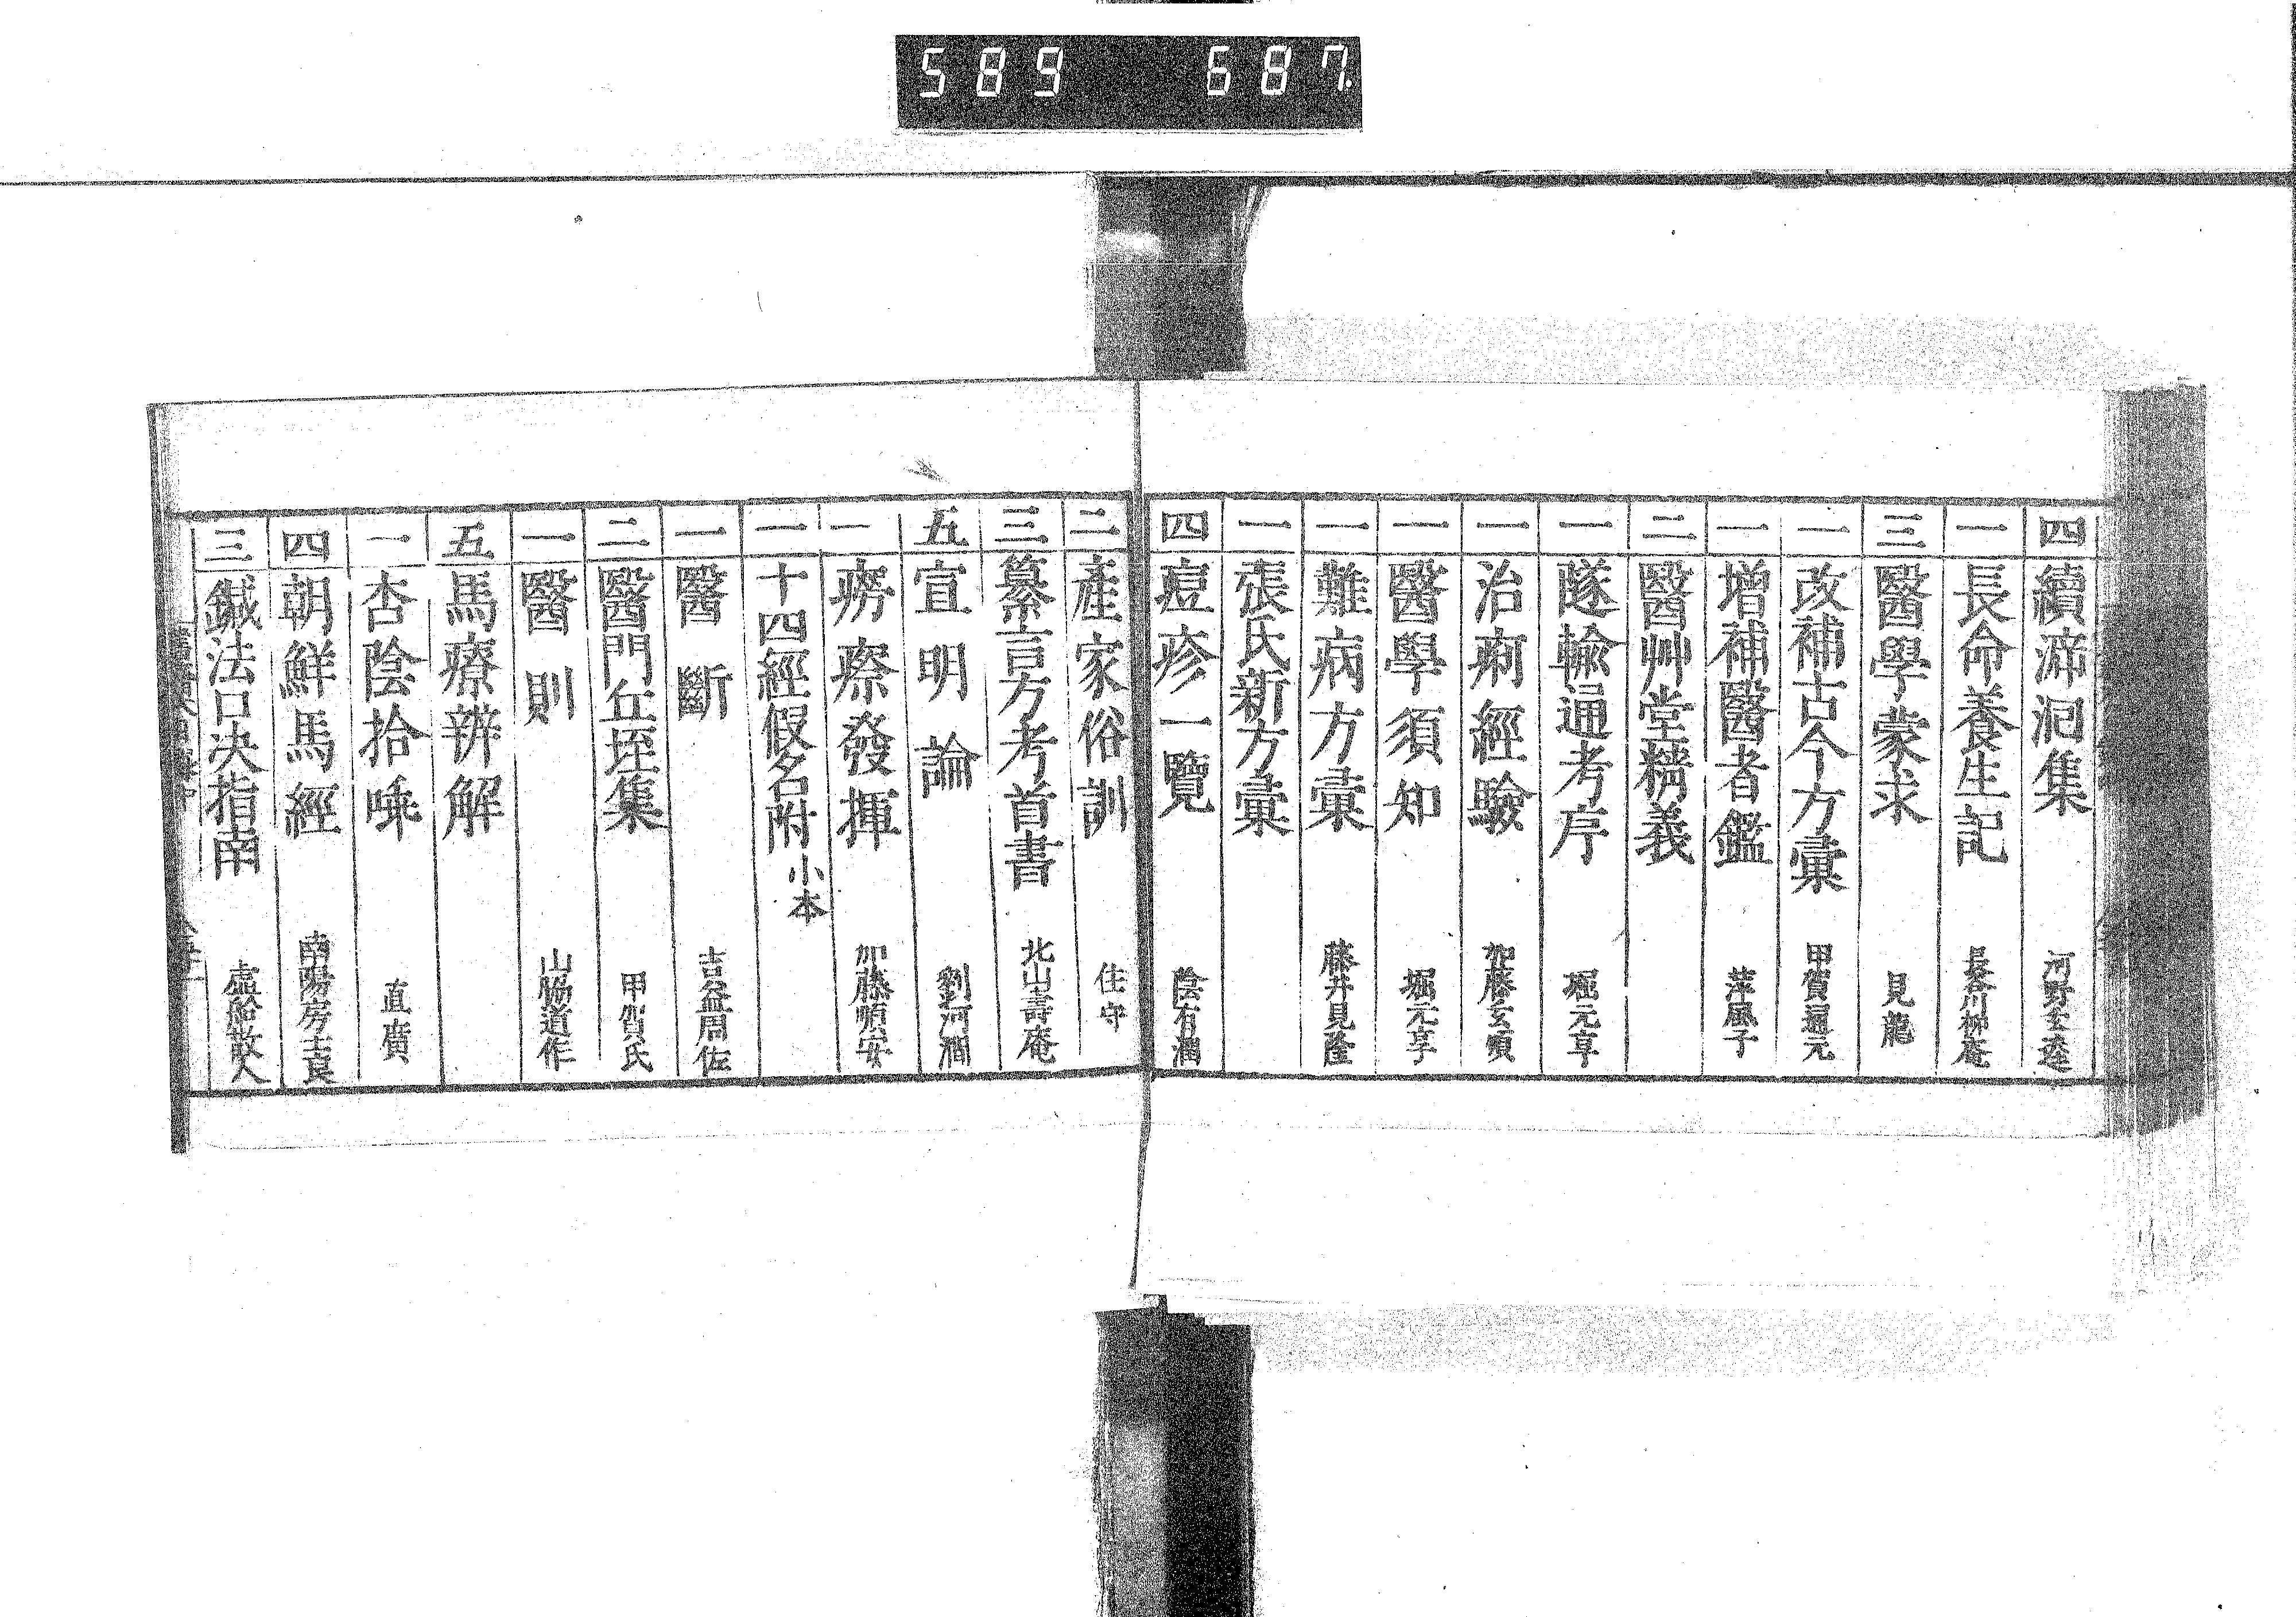 589 687
四 續㴑洄集 河野玄達
一 長命養生記 長谷川柳庵
三 醫學蒙求 見龍
一 改補古今方彙 甲賀通元
一 增補醫者鑑 萍風子
二 醫艸堂精義
一 隧輸通考序 堀元享
一 治痢經驗 加藤玄順
一 醫學須知 堀元享
一 難病方彙 藤井見隆
一 張氏新方彙
四 痘疹一覽 陰有瀾
二 產家俗訓 住守
三 纂言方考首書 北山壽庵
五 宣明論 劉河澗
一 癆瘵發揮 加藤順安
一 十四經假名附 小本
一 醫斷 吉益周佐
二 醫門丘垤集 甲賀氏
一 醫則 山脇道作
五 馬療辨解
一 杏陰拾唾 直廣
四 朝鮮馬經 南陽房士良
三 鍼法口决指南 虛船散人